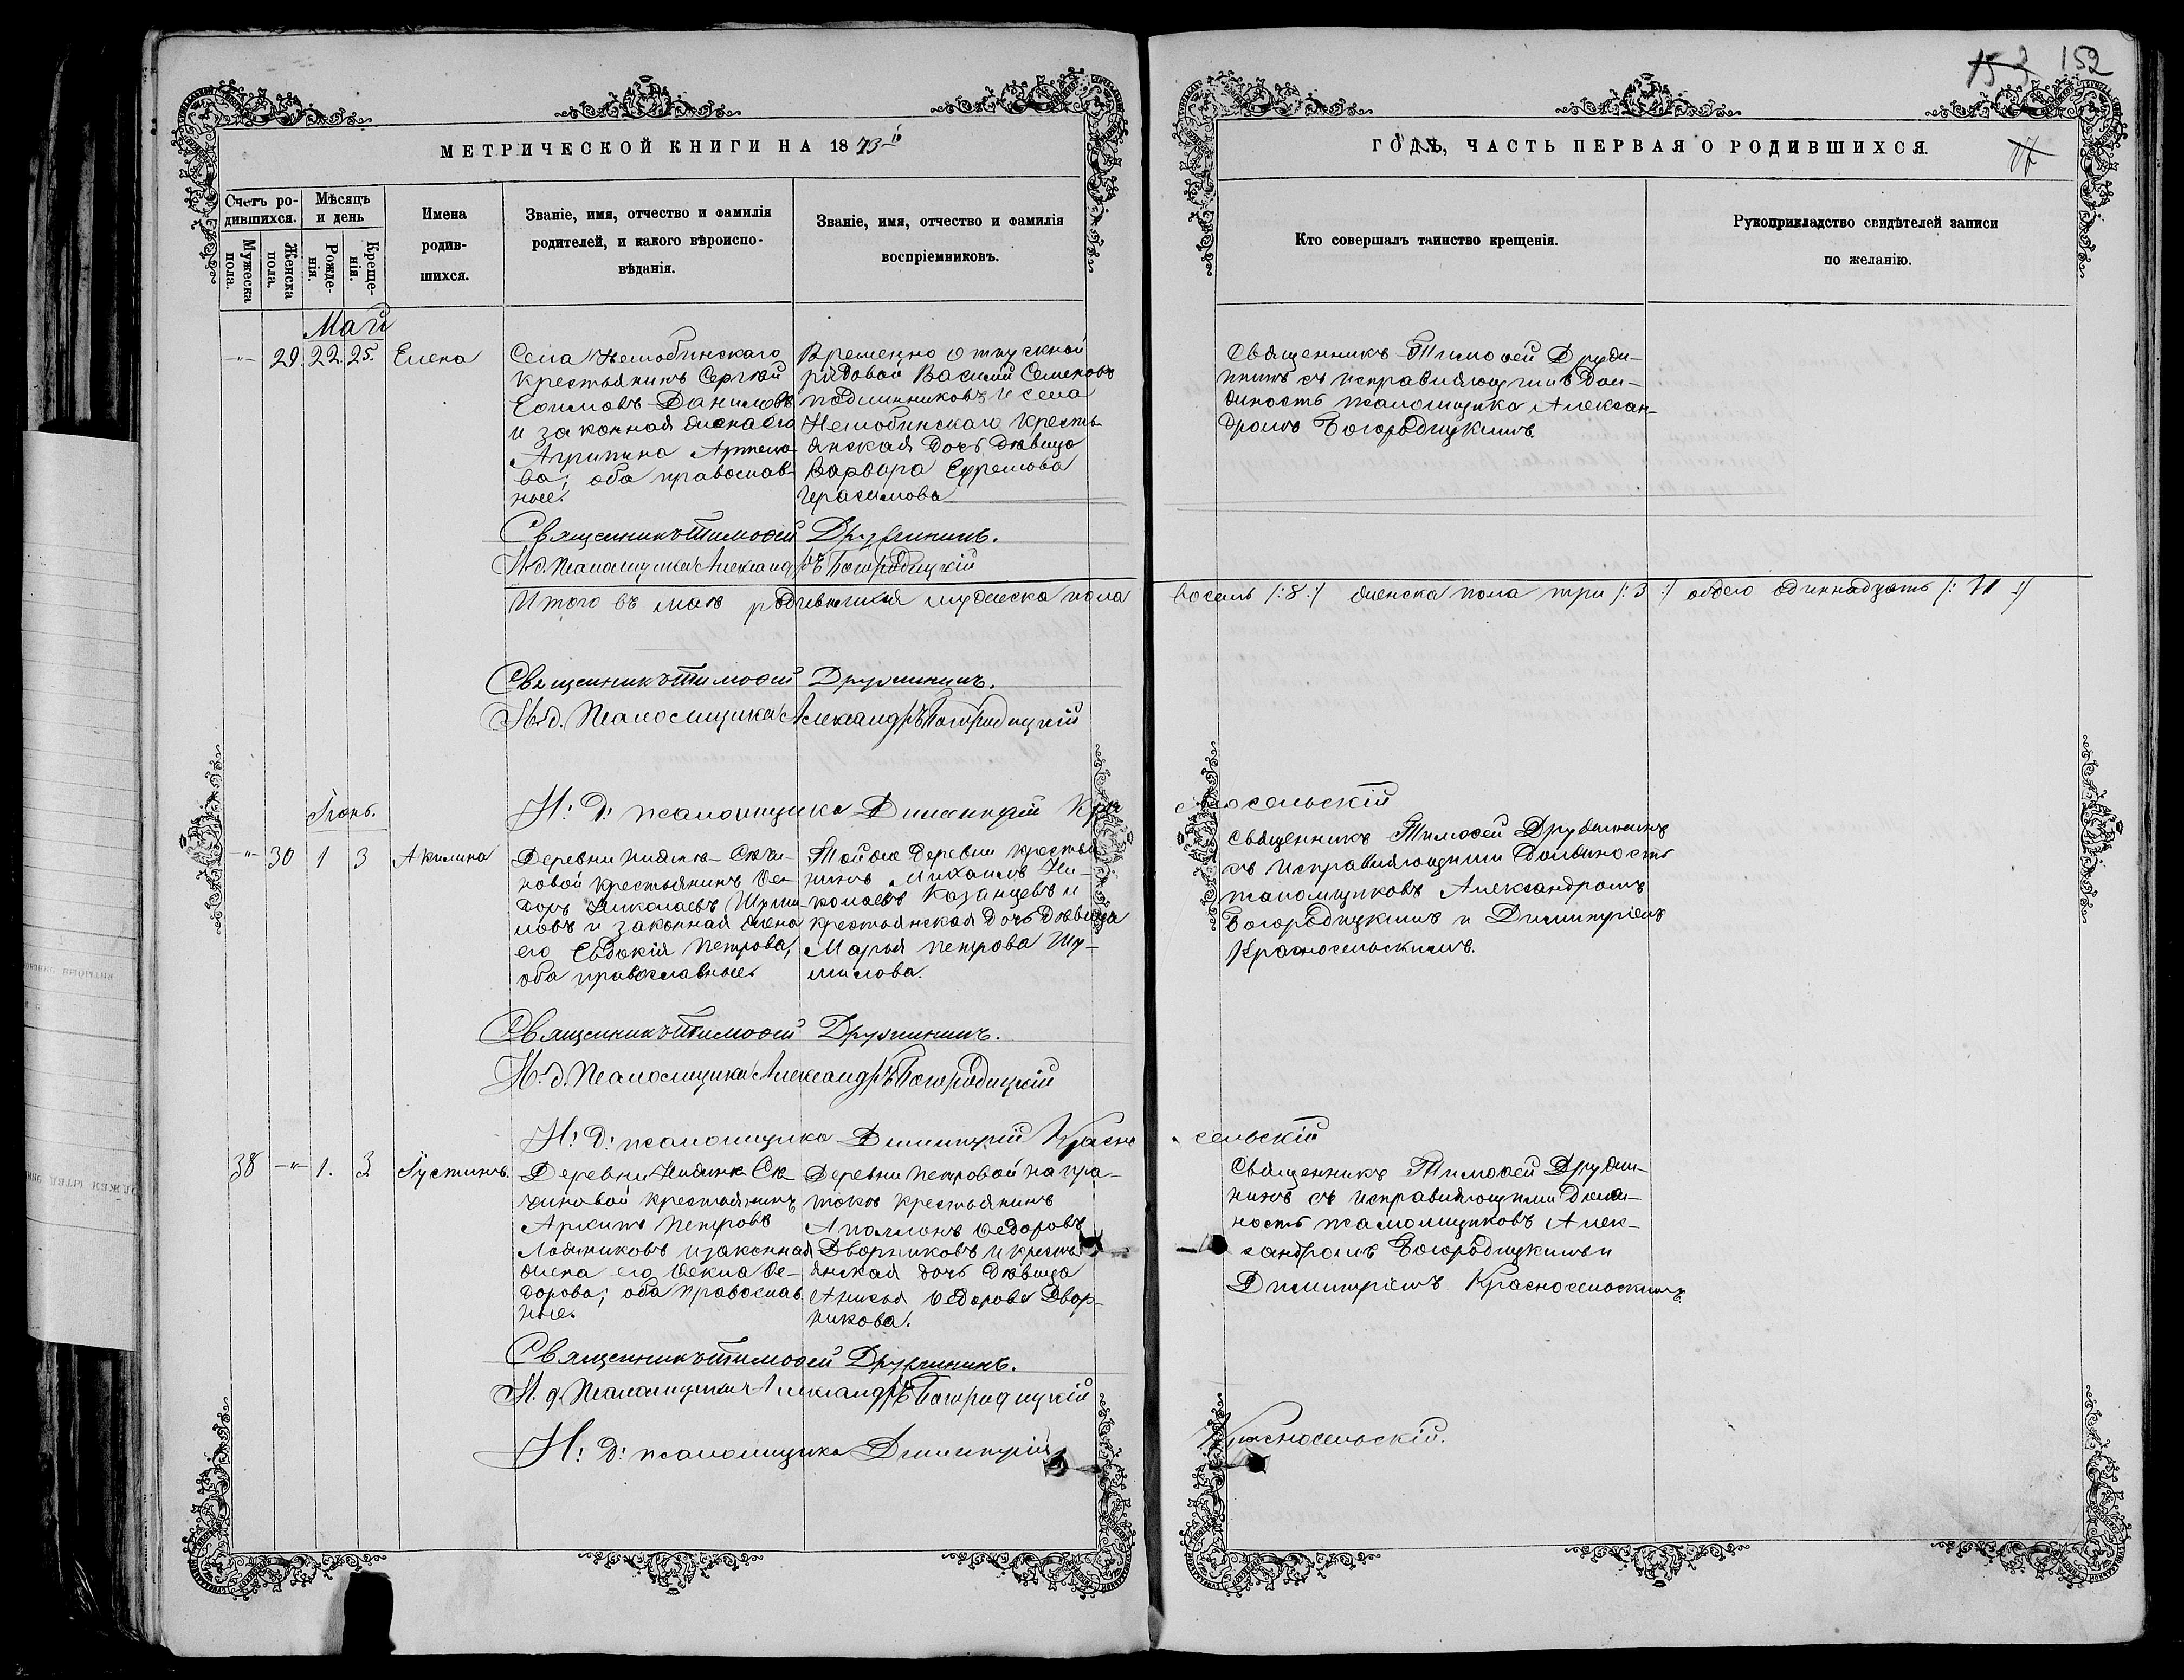 153 152
МЕТРИЧЕСКОЙ КНИГИ НА 1873й
ГОДЪ, ЧАСТЬ ПЕРВАЯ О РОДИВШИХСЯ.
17
Счетъ ро-
дившихся.
Мужеска
пола.
Женска
пола.
Мѣсяцъ
и день
Рожде-
нія.
Креще-
нія.
Имена
родив-
шихся.
Званіе, имя, отчество и фамилія
родителей, и какого вѣроиспо-
вѣданія.
Званіе, имя, отчество и фамилія
воспріемниковъ.
Кто совершалъ таинство крещенія.
Рукоприкладство свидѣтелей записи
по желанію.
Май
-"- 29. 22. 25. Елена
Села
крестьянинъ Сергѣй
Ефимовъ Даниловъ
и законная жена его
Агрипина Артемо-
ва; оба православ-
ные.
Временно отпускной
рядовой Василий Семеновъ
и села
кресть-
янская дочь дѣвица
Варвара Ефремова
Герасимова
Священникъ Тимофей Дружи-
нинъ съ исправляющимъ дол-
жность псаломщика Алексан-
дромъ Богородицкимъ
Священникъ Тимофей Дружининъ.
И.д. Псаломщика Александръ Богородицкій
Итого въ маѣ родившихся мужеска пола восемь /:8:/ женска пола три /:3:/ обоего одиннадцать /:11:/
Священникъ Тимофей Дружининъ.
И.д. Псаломщика Александръ Богородицкій
Іюнь.
И: д: псаломщика Димитрій Красносельскій
-"- 30 1 3 Акилина
Деревни Нижне-Скачи-
новой крестьянинъ Фе-
доръ Николаевъ Шуми-
ловъ и законная жена
его Евдокія Петрова,
оба православные.
Той же деревни крестья
нинъ Михаилъ Ни-
колаевъ Казанцевъ и
крестьянская дочь дѣвица
Марья Петрова Шу-
милова.
Священникъ Тимофей Дружининъ
съ исправляющими должность
псаломщиковъ Александромъ
Богородицкимъ и Димитріемъ
Красносельскимъ.
Священникъ Тимофей Дружининъ.
И.д. Псаломщика Александръ Богородицкій
И: д: псаломщика Димитрій Красносельскій
38 -"- 1. 3 Іустинъ.
Деревни Нижне Ска
чиновой крестьянинъ
Архипъ Петровъ
Ложниковъ и законная
жена его Фекла Фе-
дорова; оба православ
ные.
Деревни Петровой на Гра-
токѣ крестьянинъ
Аполлонъ Федоровъ
Дворниковъ и кресть
янская дочь дѣвица
Анисья Федорова Двор-
никова.
Священникъ Тимофей Дружи-
нинъ съ исправляющими долж-
ность псаломщиковъ Алек-
сандромъ Богородицкимъ и
Димитріемъ Красносельскимъ.
Священникъ Тимофей Дружининъ.
И. д. Псаломщика Александръ Богородицкій
И: д: псаломщика Димитрій Красносельскій.